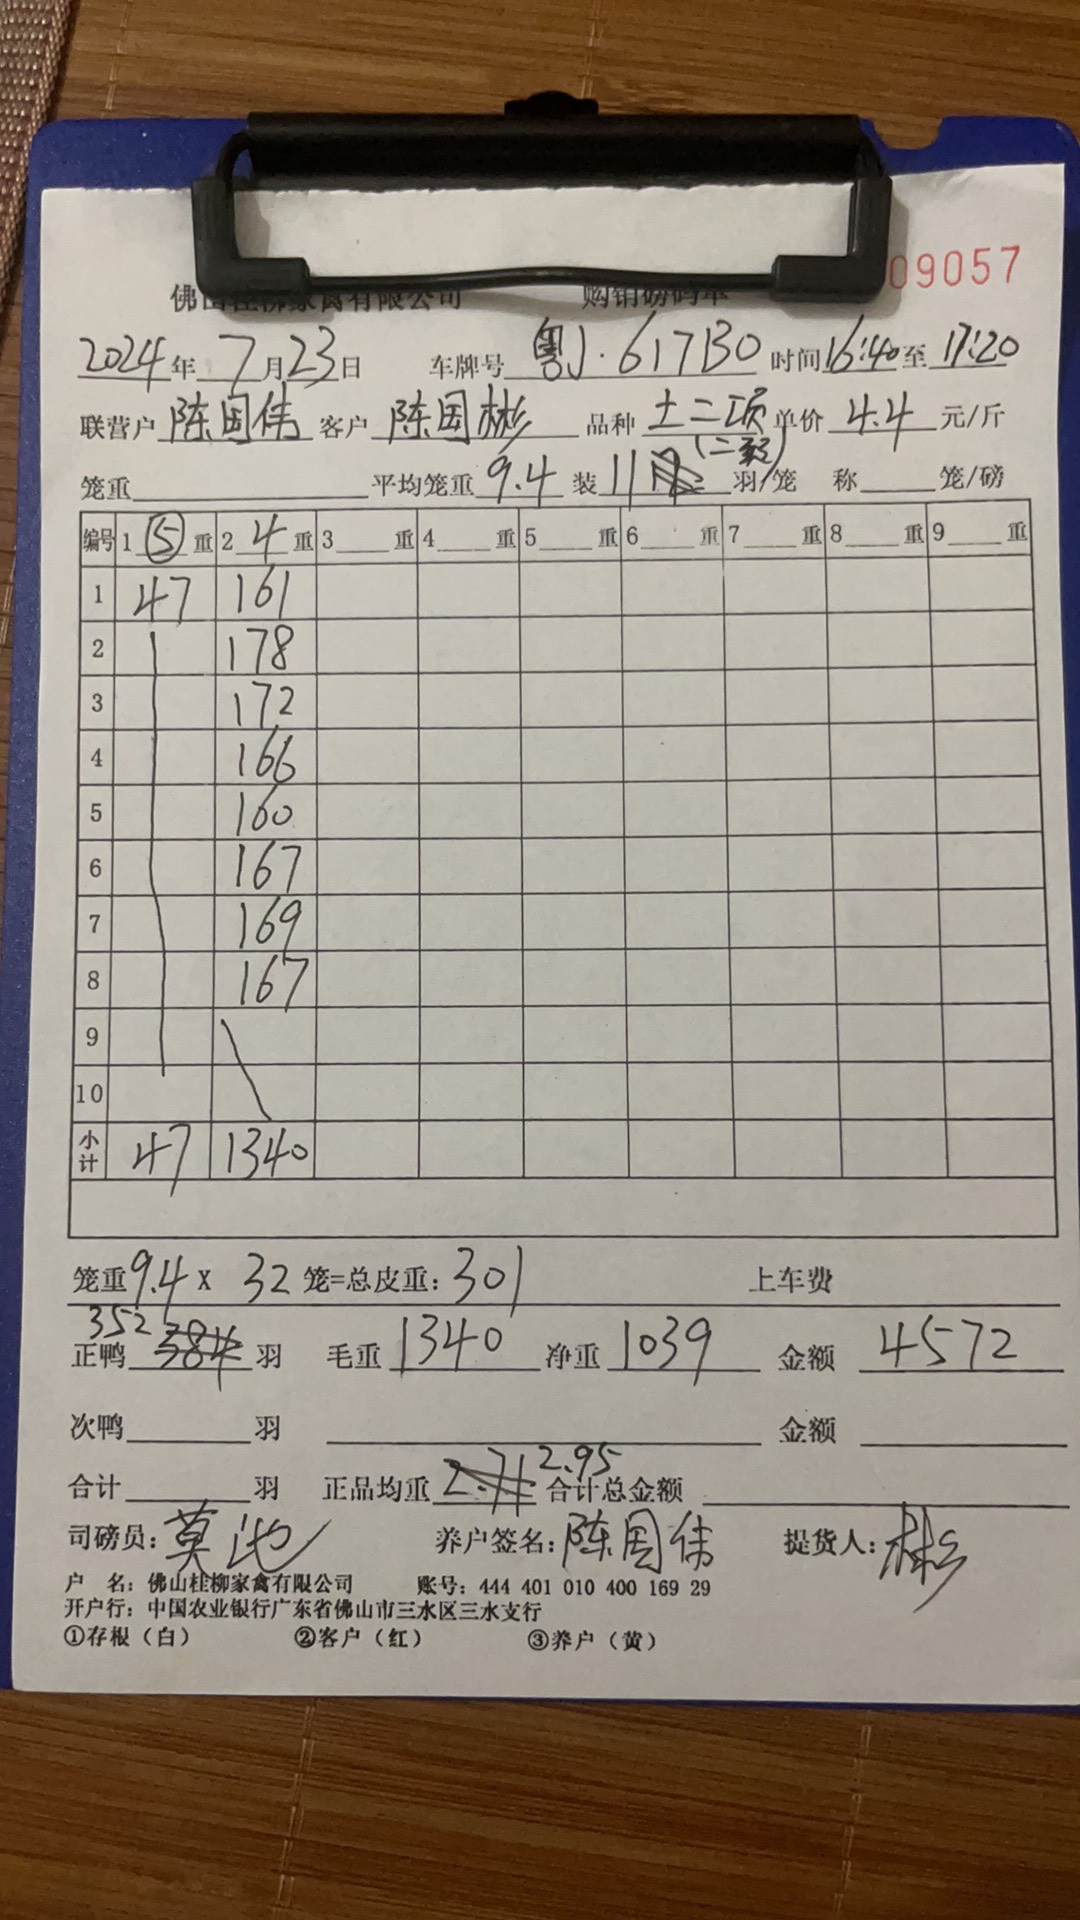 09057
佛山桂柳家禽有限公司 购销磅码单
2024年7月23日 车牌号 粤J·617B0 时间16:40至17:20
联营户 陈国伟 客户 陈国彬 品种 土二项 单价 4.4 元/斤
笼重 平均笼重 9.4 装 11 羽/笼 称 笼/磅
编号 1 ⑤ 重 2 4 重 3 重 4 重 5 重 6 重 7 重 8 重 9 重
1 47 161
2 178
3 172
4 166
5 160
6 167
7 169
8 167
9
10
小计 47 1340
笼重9.4 x 32 笼=总皮重: 301 上车费
正鸭 352 384 羽 毛重 1340 净重 1039 金额 4572
次鸭 羽 金额
合计 羽 正品均重 2.71 2.95 合计总金额
司磅员: 莫池 养户签名: 陈国伟 提货人: 彬
户 名: 佛山桂柳家禽有限公司 账号: 444 401 010 400 169 29
开户行: 中国农业银行广东省佛山市三水区三水支行
①存根（白） ②客户（红） ③养户（黄）